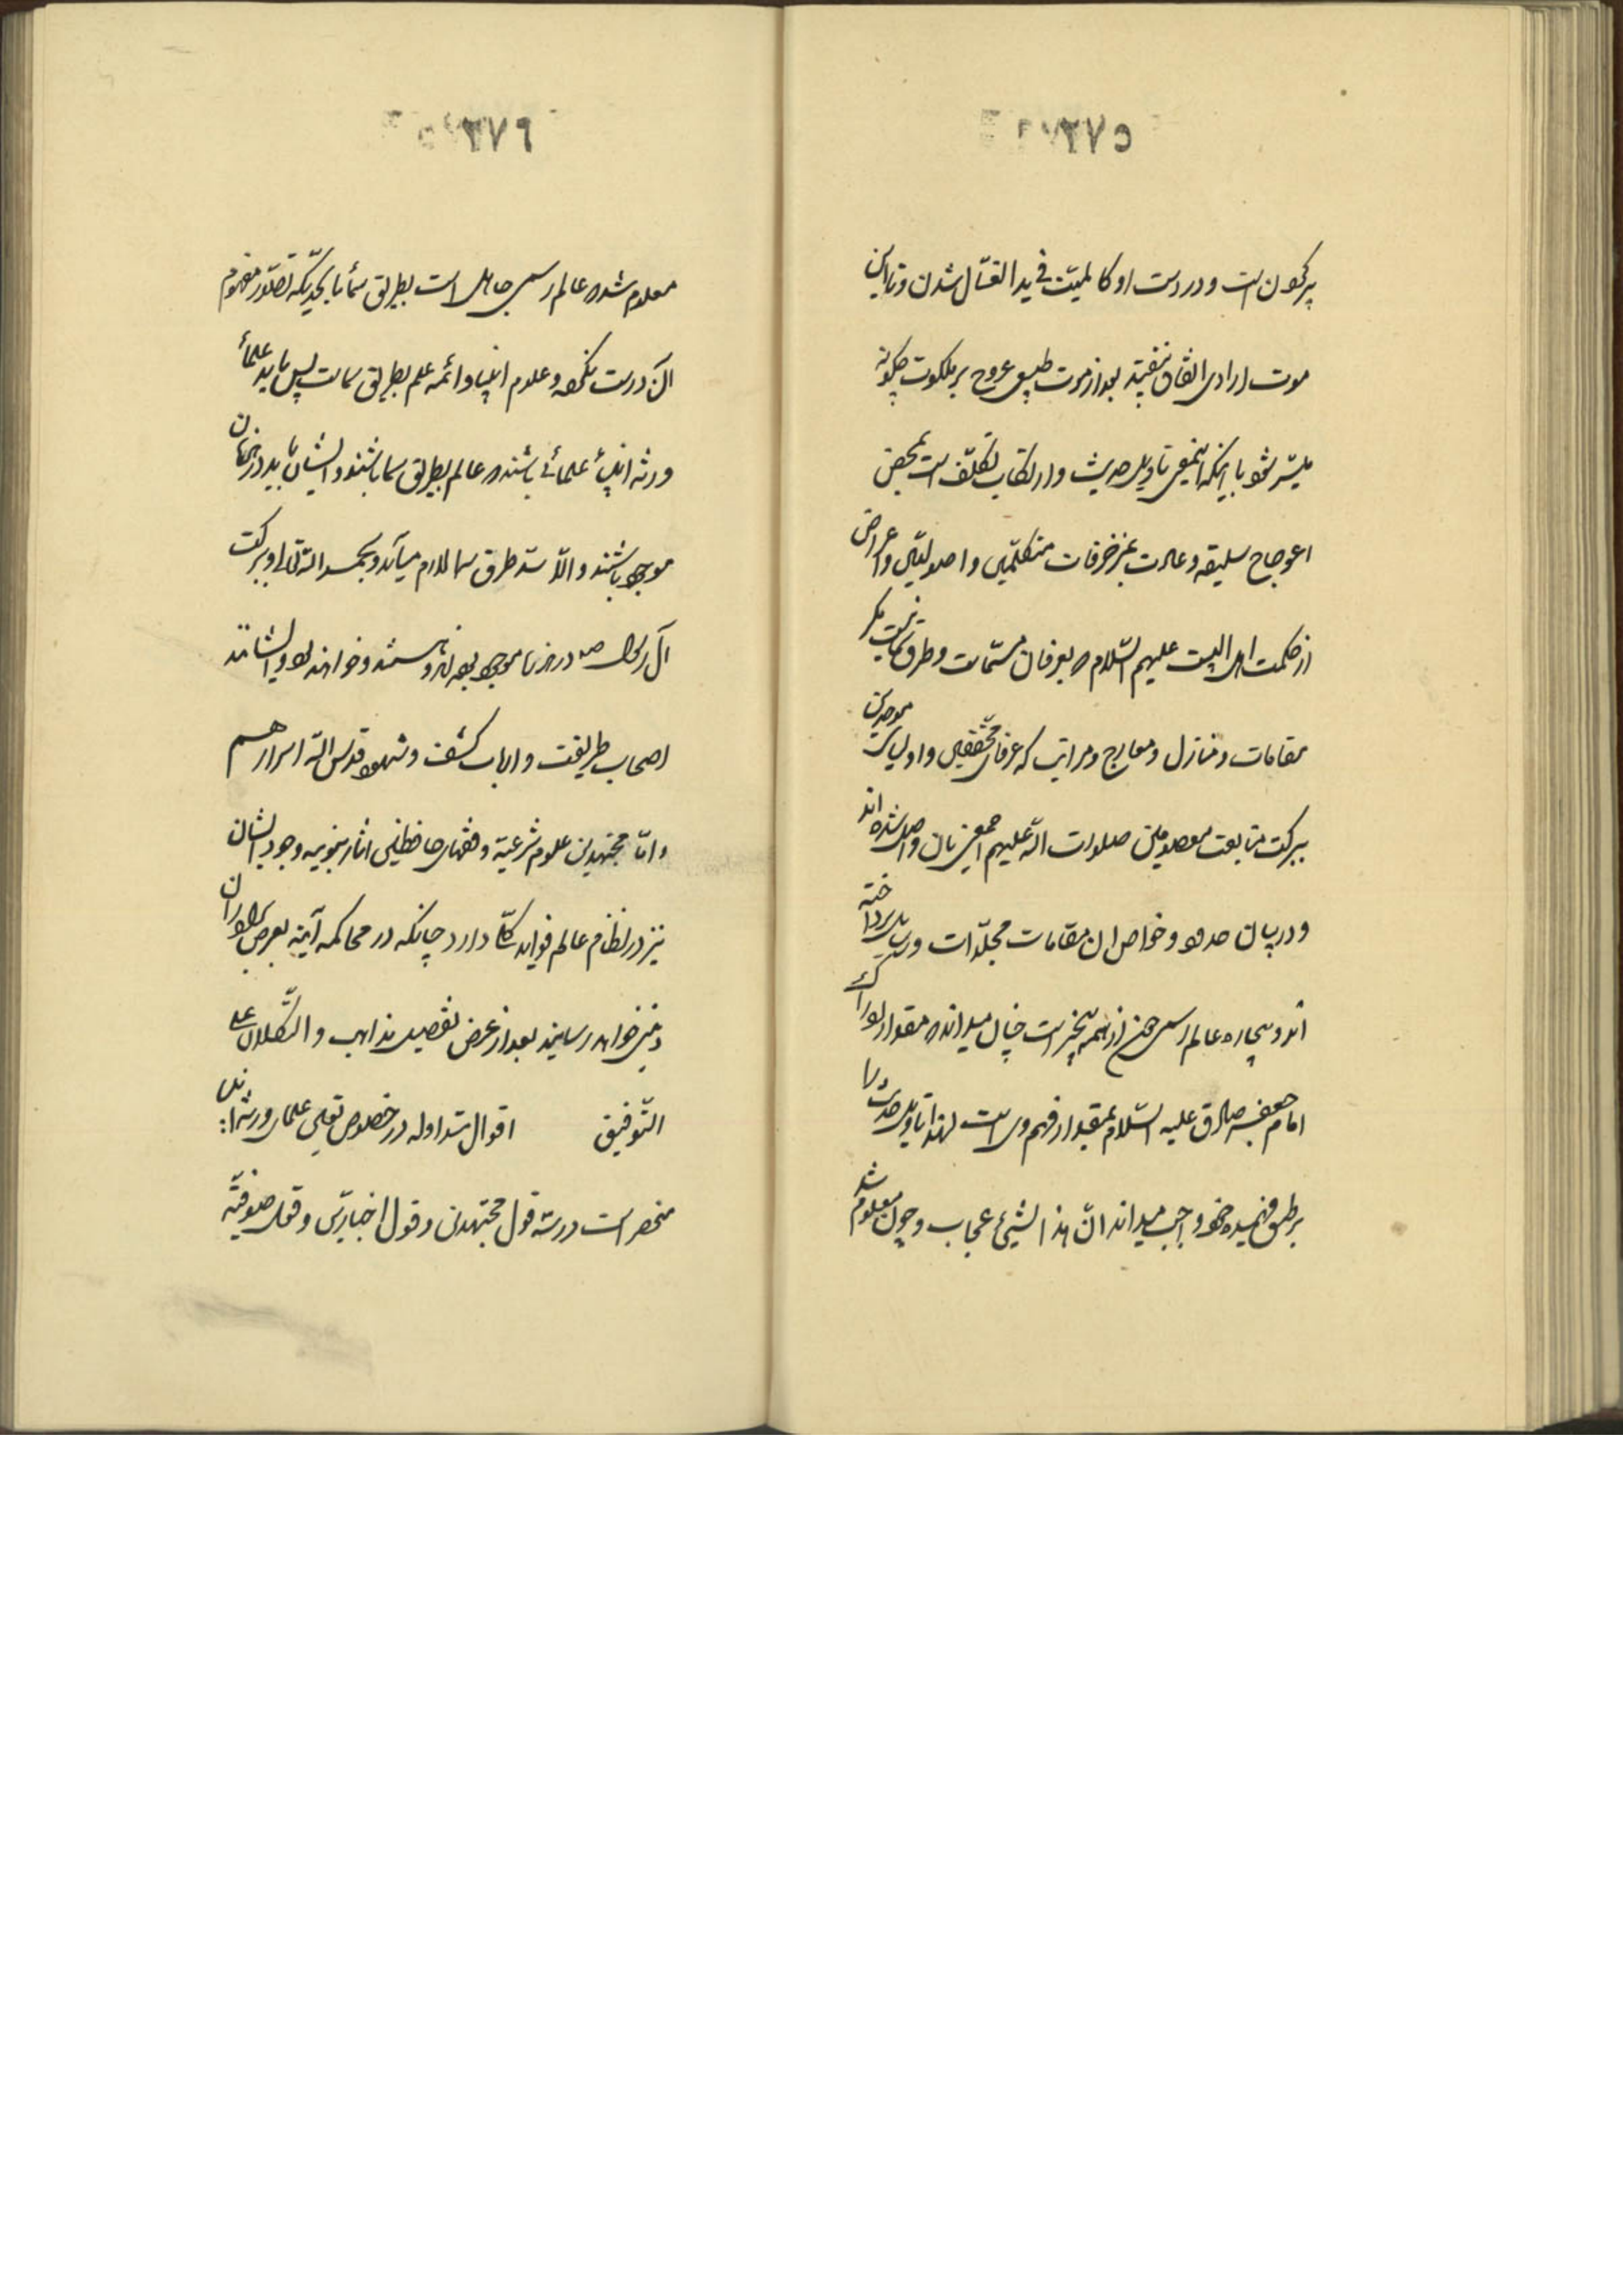 ۲۷۵
پیر کردن است و در دست او کالمیّت فی ید الغسّال شدن و تا این
موت ارادی اتفاق نیفتد بعد از موت طبیعی عروج بر ملکوت چگونه
میسّر شود با اینکه اینمعنی تاویل حدیث و ارتکاب تکلّف است بمحض
اعوجاج سلیقه و عادت بمزخرفات متکلمین و اصولیّین و اعراض
از حکمت اهل البیت علیهم السّلام و بعرفان مسمّیات و طرق
مقامات و منازل و معارج و مراتب که عرفای محققین و اولیای موحدین
ببرکت متابعت معصومین صلوات اللّه علیهم اجمعین بان واصل شده اند
و در بیان حدود و خواص ان مقامات مجلّدات و رسایل پرداخته
اند و بیچاره عالم رسمی چون از همه بیخبر است خیال میداند که مقدار ادراک
امام جعفر صادق علیه السّلام بمقدار فهم وی است لهذا تاویل حدیث را
بر طبق فهمیده خود واجب میداند انّ هذا لشیئ عجاب و چون معلوم شد
۲۷۶
معلوم شد که عالم رسمی جاهل است بطریق سمآء تا بحدیکه تصوّر مفهوم
آن درست نکرده و علوم انبیا و ائمه علم بطریق سما است پس باید علمآء
ورثه انبیآء علمائی باشند که عالم بطریق سما باشند و ایشان باید در هر زمان
موجود باشند و الّا سدّ طرق سما لازم میآید و بحمد اللّه تعالی و ببرکت
آل رسول ص در هر زمان موجود بوده اند و هستند و خواهند بود و ایشانند
اصحاب طریقت و ارباب کشف و شهود قدس اللّه اسرارهم
و امّا مجتهدین علوم شرعیّه و فقهای حافظین اثار نبویه وجود ایشان
نیز در نظام عالم فواید کلّی دارد چنانکه در محاکمه آتیه بعرض برادران
دینی خواهد رسانید بعد از عرض تفصیل مذاهب و التّکلان علی
التّوفیق اقوال متداوله در خصوص تعیین علمای ورثه انبیا
منحصر است در سه قول مجتهدین و قول اخباریین و قول صوفیّه